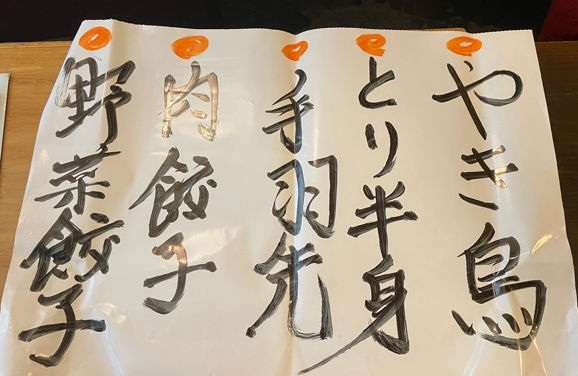 やき鳥
とり半身
手羽先
肉餃子
野菜餃子